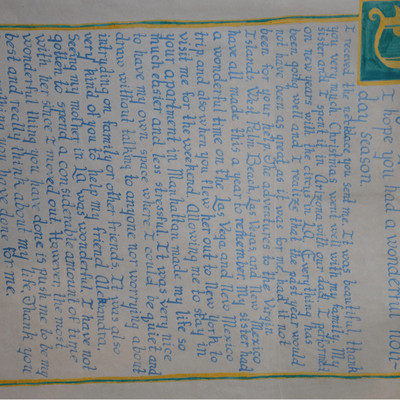 I hope you had a wonderful Holi-
day season.
I receved the necklace you sent me. It was beautiful, thank
you very much. Christmas went well with my family. My
sister and I spent it in Arizona with our dad. I
on new year's at circus in CA. Everything has
been going well and I realize that the past year would
not have been as great as it was for me had it not
been for your help. The adventures to the Virgin
Islands, West Palm Beach, Las Vegas, and New Mexico
have all made this a year to remember. My sister had
a wonderful time on the Las Vega and New Mexico
trip and also when you flew her out to New York to
visit me for the weekend. Allowing me to stay in
your apartment in Manhattan made my life so
much easier and less stressful. It was very nice
to have my own space where I could be quiet and
draw without talking to anyone not worrying about
intruding on family or other friends. It was also
very kind of you to help my friend Alexandra.
Seeing my mother in LA was wonderful. I have not
gotten to spend a considerable amount of time
with her since I moved out. the most
wonderful thing you have done is push me to be my
best and really think about my life. Thank you
you have done for me.